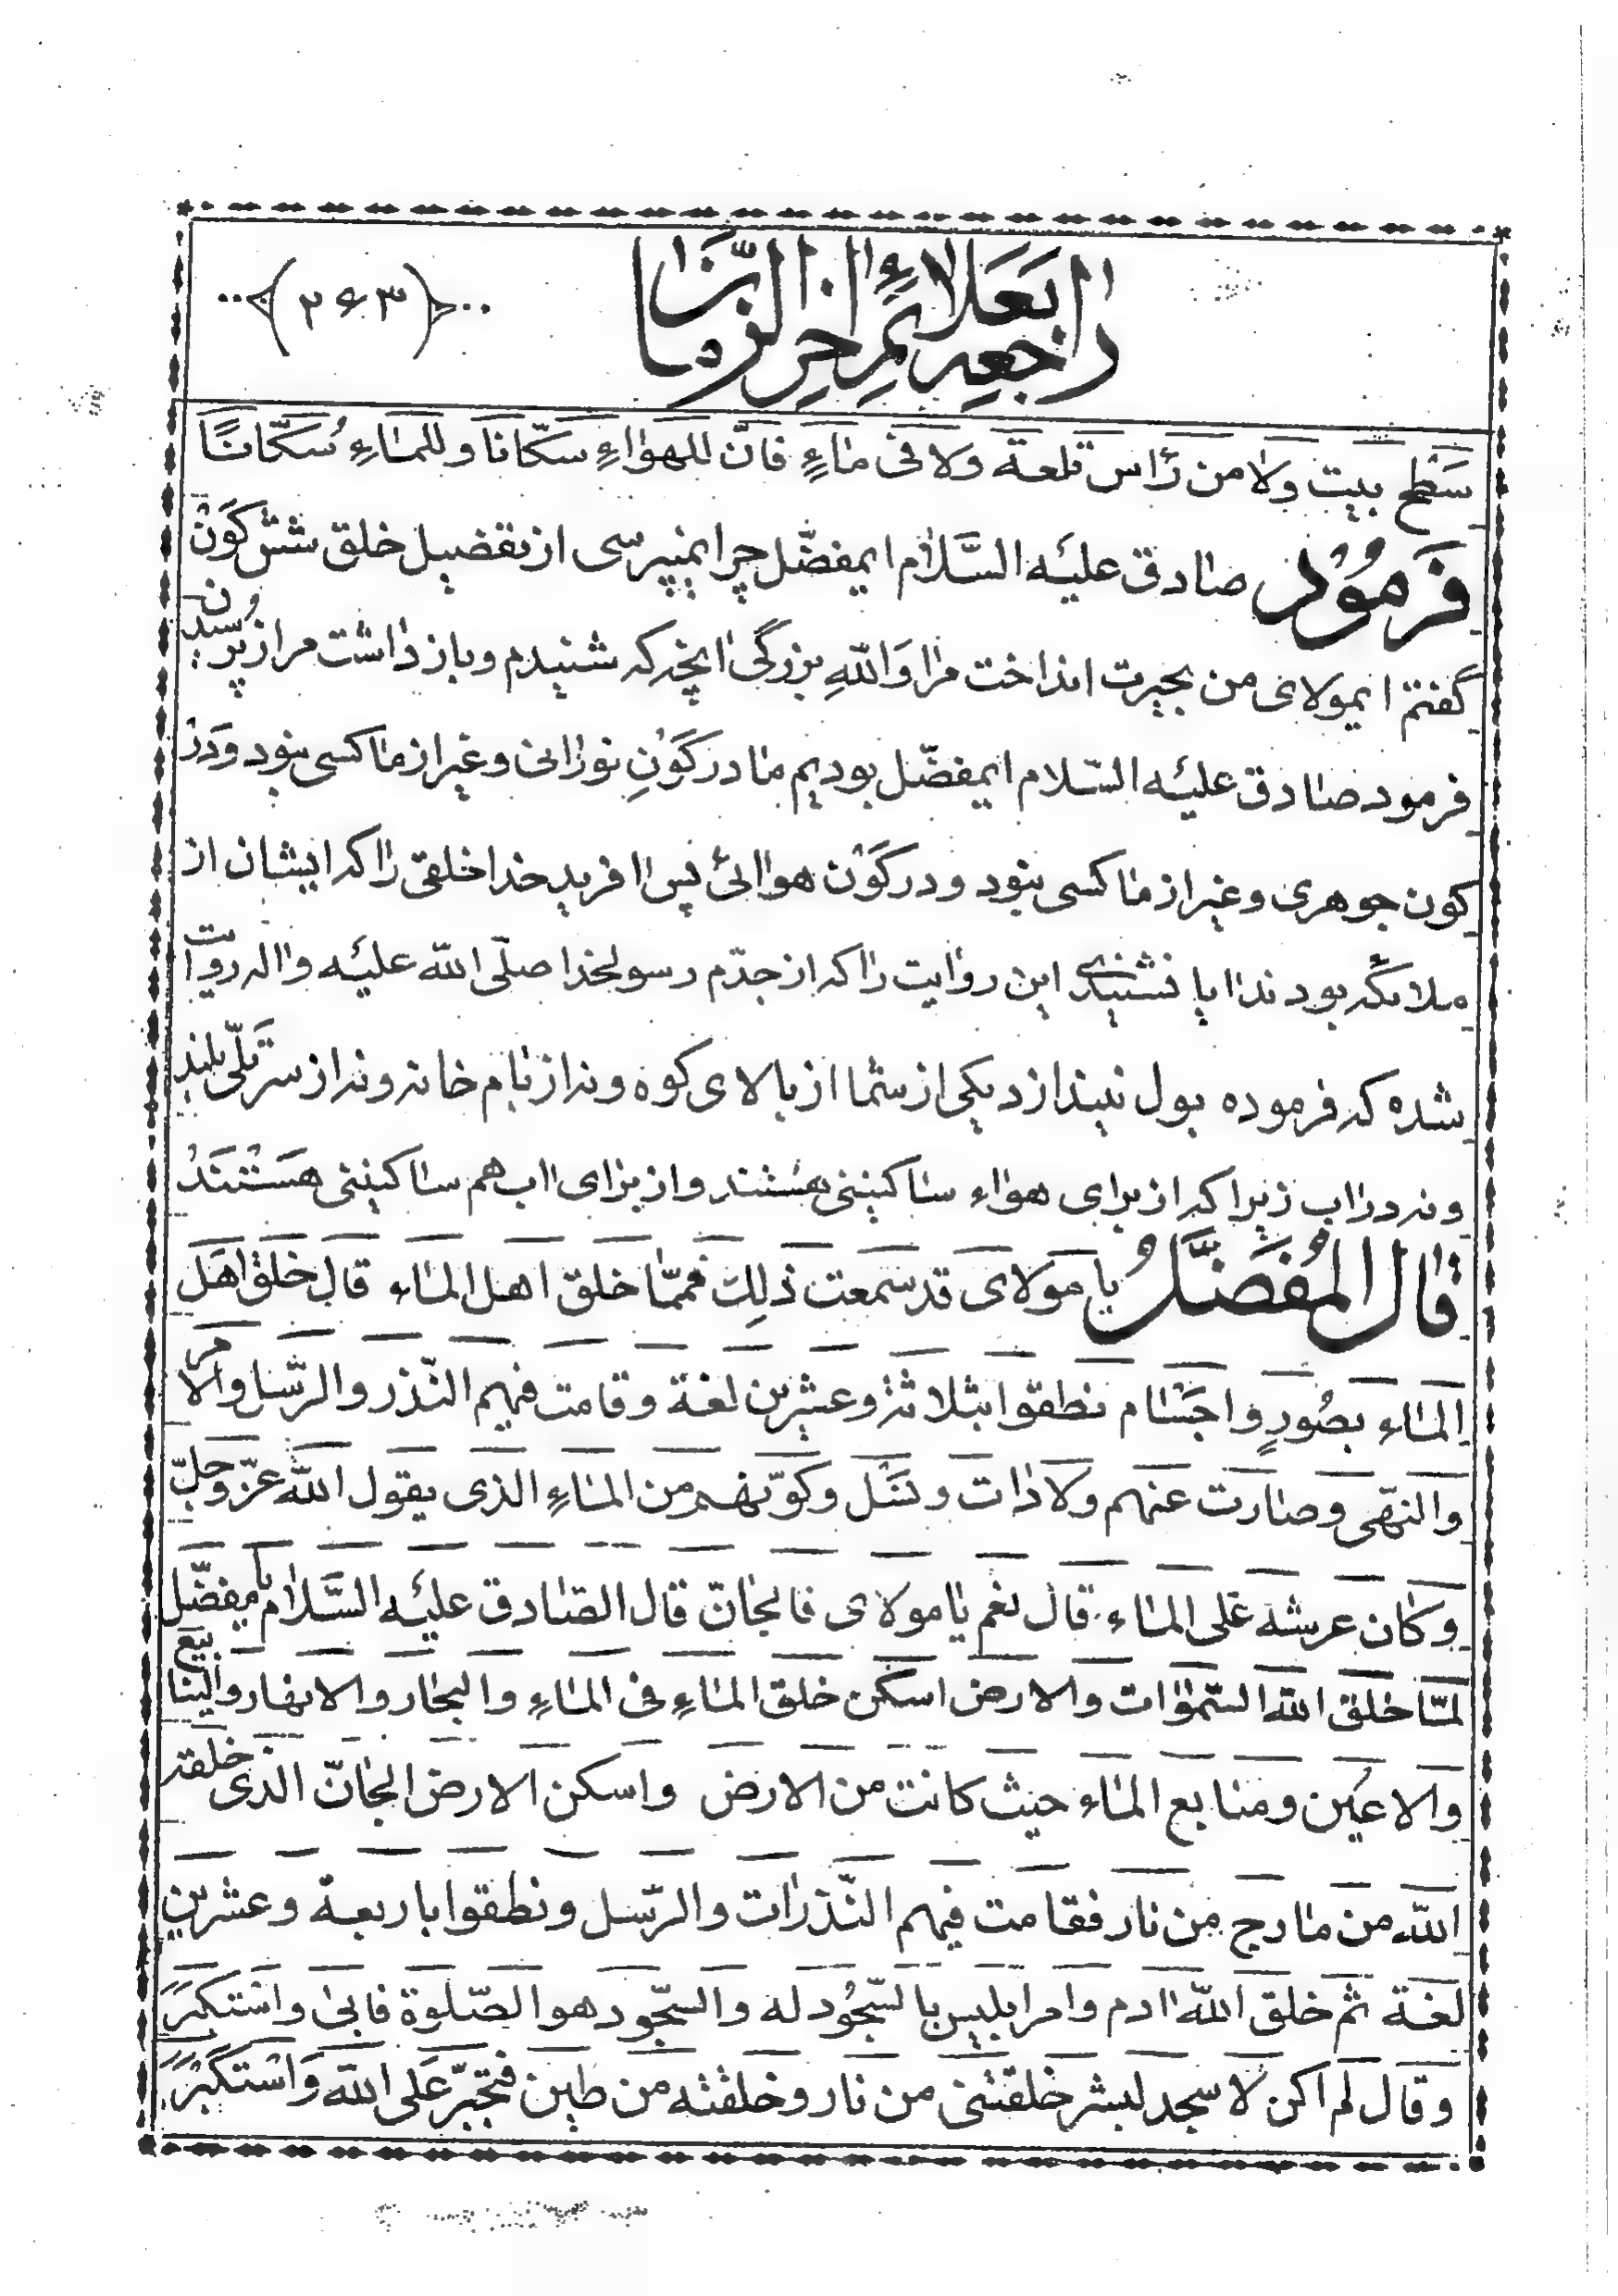 راجعه بعلائم اخر الزمان
(۲۶۳)
سَطح بیت ولا من رَأس قلعة ولا فی ماءٍ فانّ للهَواءِ سکّانا وللمَاءِ سُکّانًا
فَرمُود صادق علیه السَّلام ایمفضّل چرا نمیپرسی از تفضیل خلق شش کَوْن
گفتم ایمولای من بحیرت انداخت مرا وَاللّهِ بزرگی انچه که شنیدم و باز داشت مرا از پرسیدن
فرمود صادق علیه السّلام ایمفضّل بودیم ما در کَوْنِ نورانی و غیر از ما کسی نبود وَدَر
کون جوهری و غیر از ما کسی نبود و در کَوْن هوائی پس افرید خدا خلقی را که ایشان از
ملائکه بودند ایا نشنیدی این روایت را که از جدّم رسولخدا صلّی اللّه علیه واله روایت
شده که فرموده بول نیندازد یکی از شما از بالای کوه و نه از بام خانه و نه از سر تلّی بلند
و نه در اب زیرا که از برای هواء ساکنینی هستند و از برای اب هم ساکنینی هَسْتَنَد
قال المُفَضَّلُ یا مولای قد سمعت ذلِک فممّا خلق اهل الماء قال خلق اهَل
الماء بصُورٍ واجَسْام نطقوا بثلاثة وعشرین لغة وقامت فیهم النّذر والرّسل والامر
والنهّی وصارت عنهم ولادات ونسَل وکوّنهم من الماءِ الذی یقول اللّه عزّ وجلّ
وکان عرشه عَلی الماء قال نعم یا مولای فالجانّ قال الصّادق علیه السَّلام یا مفضّل
لمّا خلق اللّه السّموات والارض اسکن خلق الماءِ فی الماءِ والبحار والانهار والینابیع
والاعیُن ومنابع الماء حیث کانت من الارض واسکن الارض الجانّ الذی خلقه
اللّه من مارج من نار فقامت فیهم النّذرات والرّسل ونطقوا باربعة وعشرین
لغة ثم خلق اللّه ادم وامر ابلیس بالسّجُود له والسّجود هو الصّلوة فابی واسْتکبَرَ
وقال لم اکن لاَسجد لبشر خلقتنی من نار وخلقته من طین فتجبّر عَلی اللّه وَاسْتَکبَرَ